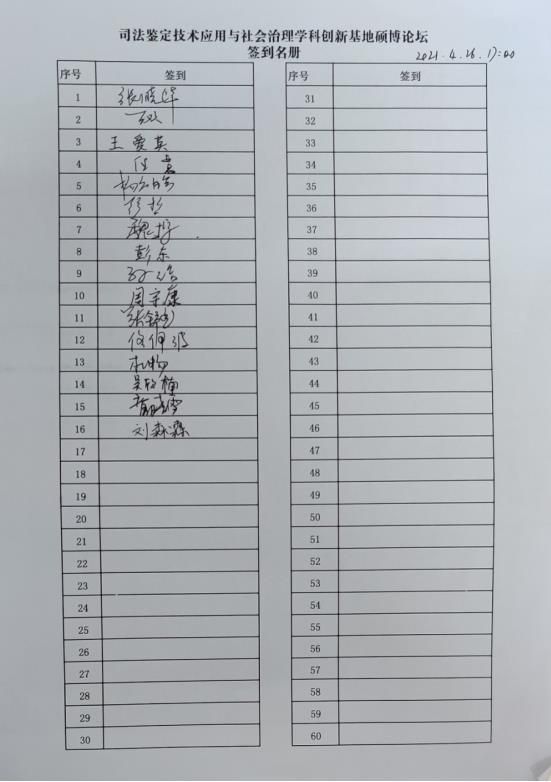 司法鉴定技术应用与社会治理学科创新基地硕博论坛
签到名册
2021.4.26.17:00
序号 签到
1 张晓
2
3 王爱英
4
5
6
7 魏
8 彭东
9
10 周宗康
11 张
12 佟
13
14 吴
15
16 刘森霖
17
18
19
20
21
22
23
24
25
26
27
28
29
30
序号 签到
31
32
33
34
35
36
37
38
39
40
41
42
43
44
45
46
47
48
49
50
51
52
53
54
55
56
57
58
59
60